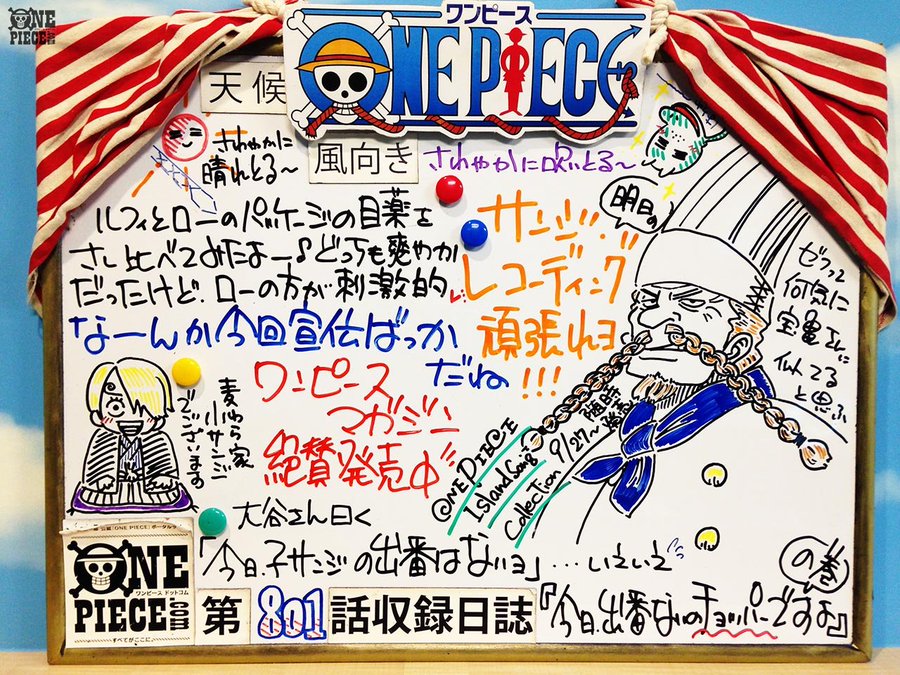 ONE PIECE.COM
ワンピース
ONE PIECE
天候
さわやかに
晴れとる〜
風向き
さわやかに吹いとる〜
ルフィとローのパッケージの目薬を
さし比べてみたよー♪どっちも爽やか
だったけど、ローの方が刺激的
なーんか今回宣伝ばっか
だね
ワンピース
マガジン
絶賛発売中
明日の
サンジ!!
レコーディング
頑張れヨ
!!!
ゼフって
何気に
宝亀さんに
似てる
と思ふ
ONE PIECE
Island Song
Collection
9/27〜
麦わら家
小サンジ
でございます
大谷さん曰く
「今日、子サンジの出番はないョ」…いえいえ
ONE
PIECE.COM
ワンピース ドットコム
すべてがここに
第801話収録日誌
『今日、出番ないのチョッパーですよ』
の巻